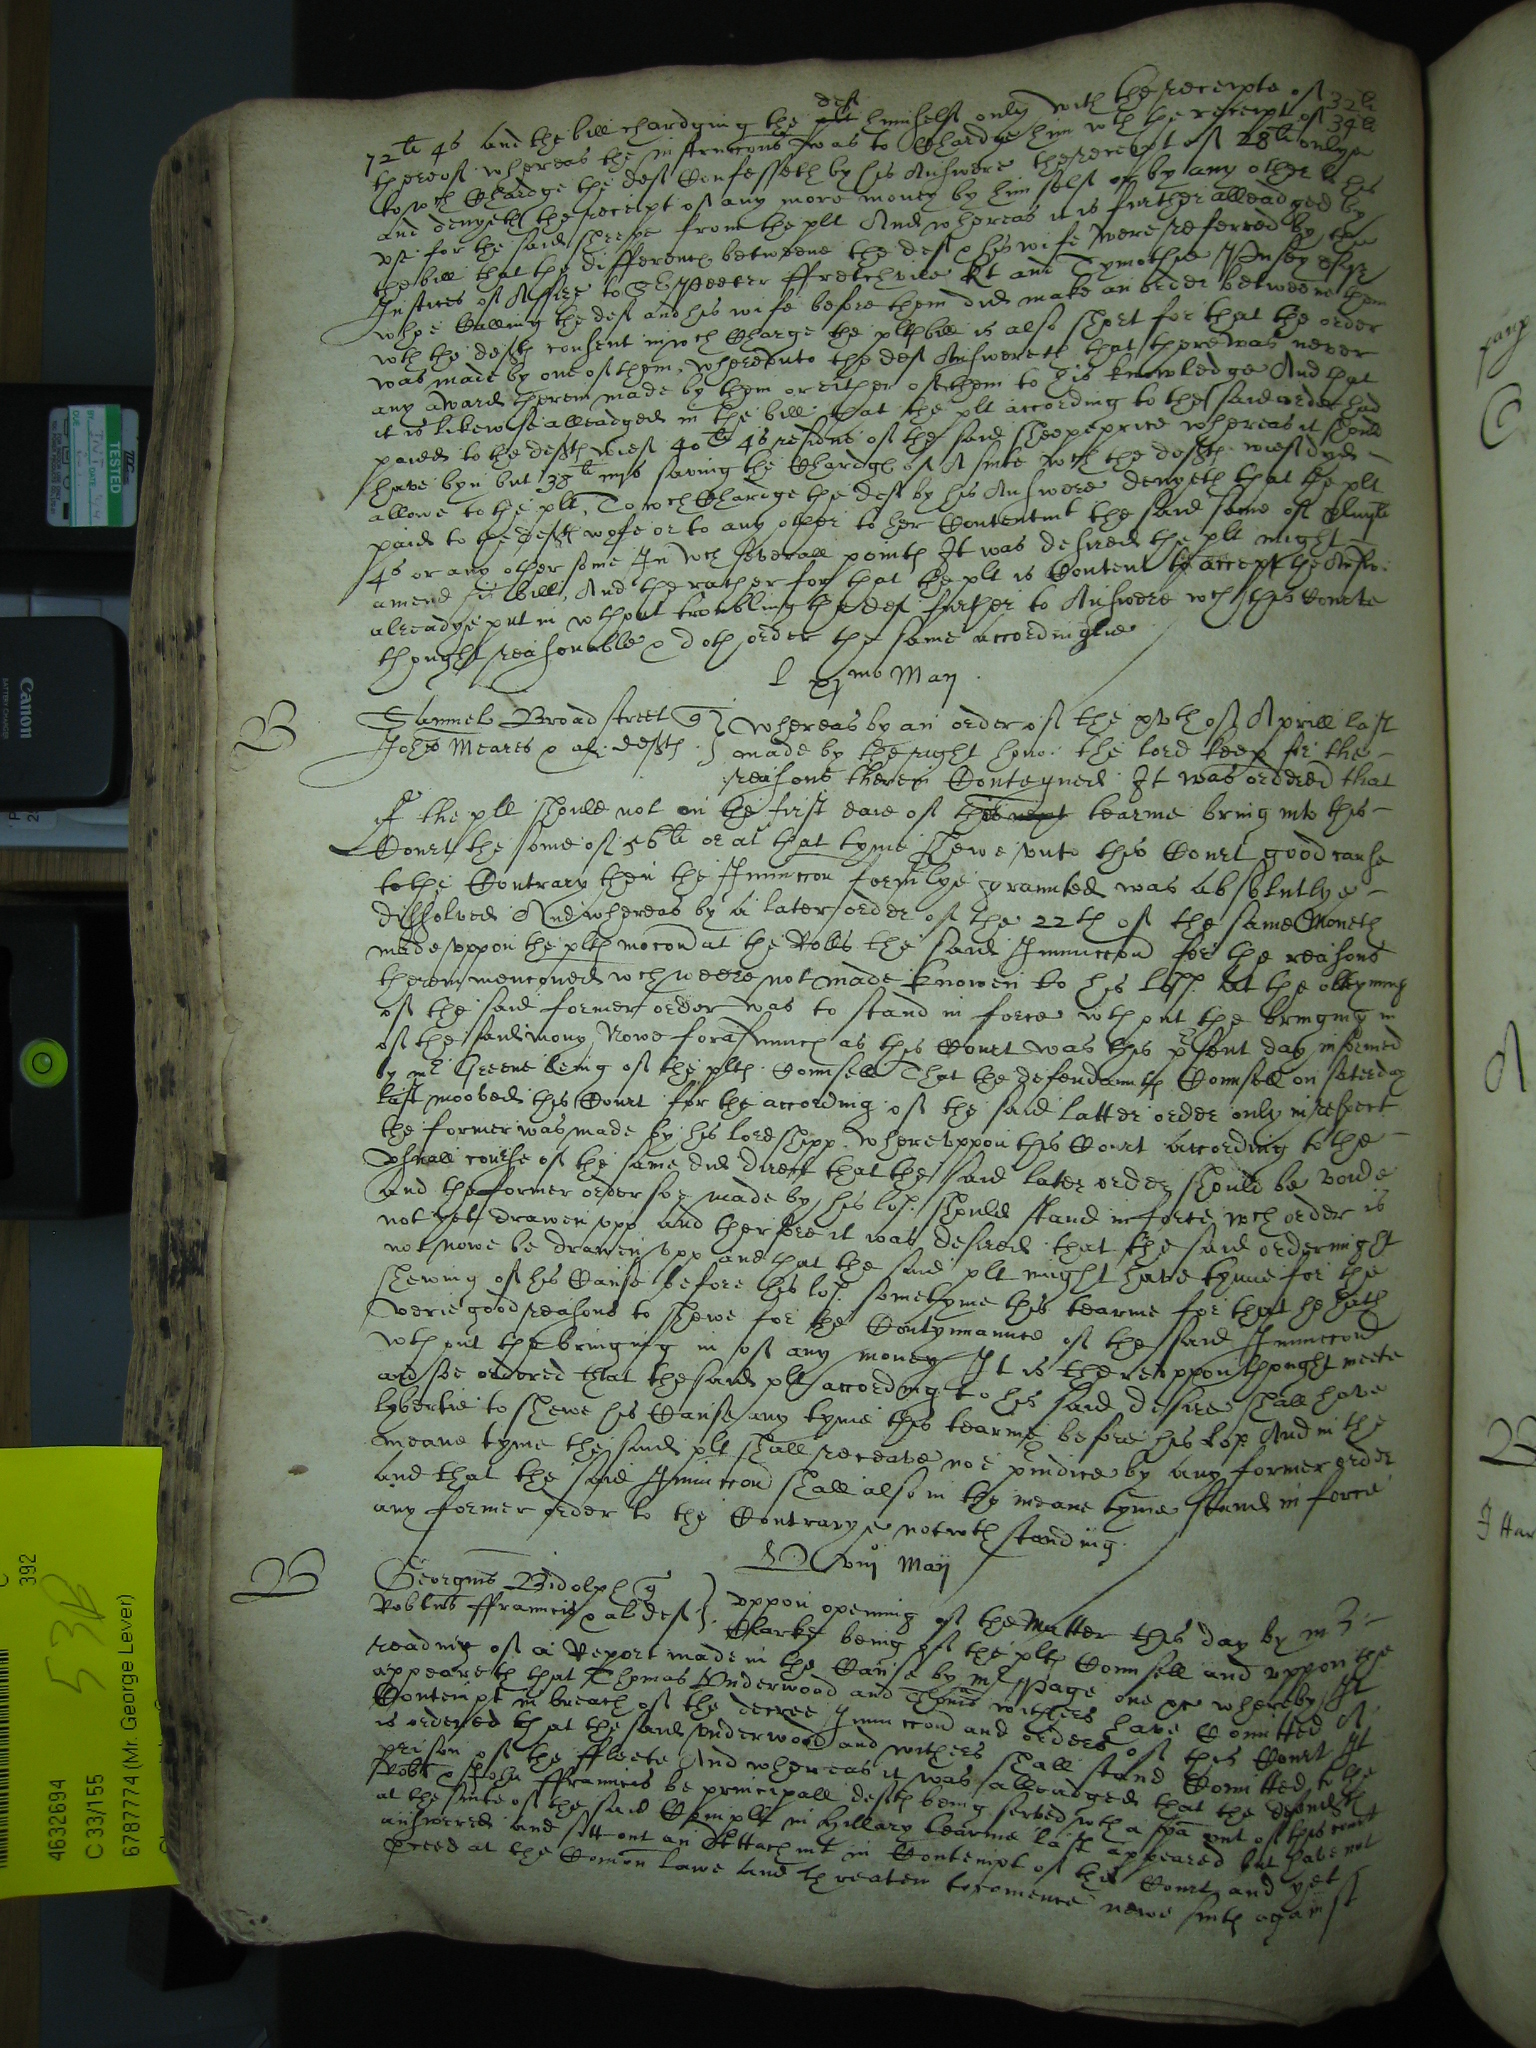 72li 4s and the bill chardging the plt deft himself only with the receipte of 32li
thereof whereas the instruccons was to Chardge him wth the receipt of 34li
to wch Chardge the deft Confesseth by his Answere the receipt of 28li onlye
and denyeth the receipt of any more money by him self or by any other to his
use for the said sheepe from the plt And whereas it is further alleadged by
the bill that the differences betweene the deft & his wife were referred by the
Justices of Assize to Sr Peeter ffretchvile Kt and Tymothie Pusey esqr
whoe Calling the deft and his wife before them did make an order betweene them
wth the defts consent in wch Charge the plts bill is also short for that the order
was made by one of them, whereunto the deft Answereth that there was never
any award therein made by them or either of them to his knowledge And that
it is likewise alleadged in the bill that the plt according to the said order had
paied to the defts wief 40li 4s residue of the said sheepe price whereas it should
have byn but 38li saving the Chardge of A suite wch the defts wief dyd
allowe to the plt, To wch Chardge the deft by his Answere denyeth that the plt
paid to the defts wyfe or to any other to her Contentmt the said some of
4s or any other some In wch severall points It was desired the plt might
amend his bill, And the rather for that the plt is Content to accept the Answere
alreadye put in wthout troubling the deft further to Answere wch this Courte
thought reasonable & doth order the same accordinglie
L mo Maij
B
Samuel Broadstreet q
John Meares & al defts
Whereas by an order of the xvth of Aprill last
made by the right hono: the lord keep for the
reasons therein Conteyned It was ordered that
if the plt should not on the first daie of this next tearme bring into this
Court the some of 56li or at that tyme shewe unto this Court good cause
to the Contrary then the Iniunccon formlye graunted was absolutlye
dissolved And whereas by a later order of the 22th of the same Moneth
made uppon the plts mocon at the Rolls the said Iniunccon for the reasons
therein mencioned wch weere not made knowen to his lopp at the obteyning
of the said former order was to stand in force wthout the bringing in
of the said mony, Nowe forasmuch as this Court was this pnsent day informed
by mr Greene being of the plts Counsell That the defendannts Counsell on saterday
last mooved this Court for the according of the said latter order only in respect
the former was made by his lordshipp whereuppon this Court according to the
Usuall course of the same did direct that the said later order should be voide
and the former order soe made by his lop should stand in force, wch order is
not yet drawen upp and therfore it was desired that the said order might
not nowe be drawen upp and that the said plt might have tyme for the
shewing of his Cause before his lop sometyme this tearme for that he hath
verie good reasons to shewe for the Contynuance of the said Iniunccon
wthout the bringing in of any money It is thereuppon thought meete
and soe ordered that the said plt according to his said desire shall have
lybertie to shewe his Cause any tyme this tearme before his lop And in the
meane tyme the said plt shall receave noe preiudice by any former order
and that the said Iniunccon shall also in the meane tyme stand in force
any former order to the Contrarye notwthstanding.
viij Maij
B
Georgius Bidolph q
Robtus ffrauncis & al deft
uppon opening of the matter this day by mr
Clarke being of the plts Counsell and uppon the
reading of a Report made in the Cause by mr Page one &c whereby It
appeareth that Thomas Underwood and Thoms withers have Comitted A
Contempt in breach of the decree Iniunccon and orders of this Court It
is ordered that the said Underwood and withers shall stand Comitted to the
prison of the ffleete And whereas it was alleadged that the defendts
Robt & John ffrauncis be principall defts being served wth a spa out of this court
at the suite of the said Complt in hillary tearme last appeared but have not
answered and sitt out an Attachmt in Contempt of this Court and yet
pceed at the Comon lawe and threaten to comence newe suits against
TESTED
INIT
DATE
Canon
BATTERY CHARGER
392
53B
4632694
C 33/155
6787774 (Mr. George Lever)